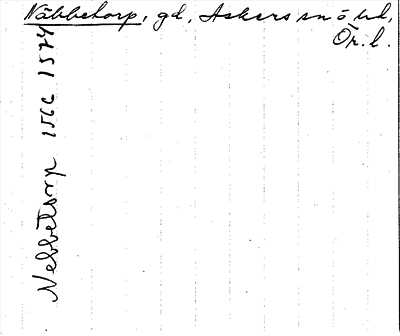 Näbbetorp, gd, Askers sn ö hd,
Ör. l.
Nebbetorp 1566 1574